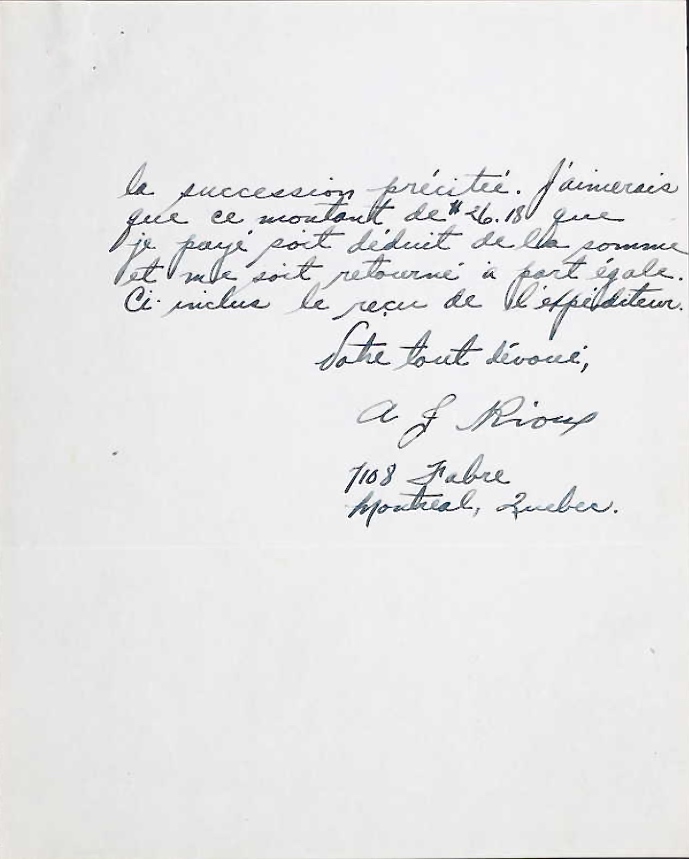 la succession précitée. J'aimerais
que ce montant de $26.18 que
je payé soit déduit de la somme
et me soit retourné à part égale.
Ci-inclus le reçu de l'expéditeur.
Votre tout dévoué,
A J Rioux
7108 Fabre
Montreal, Quebec.